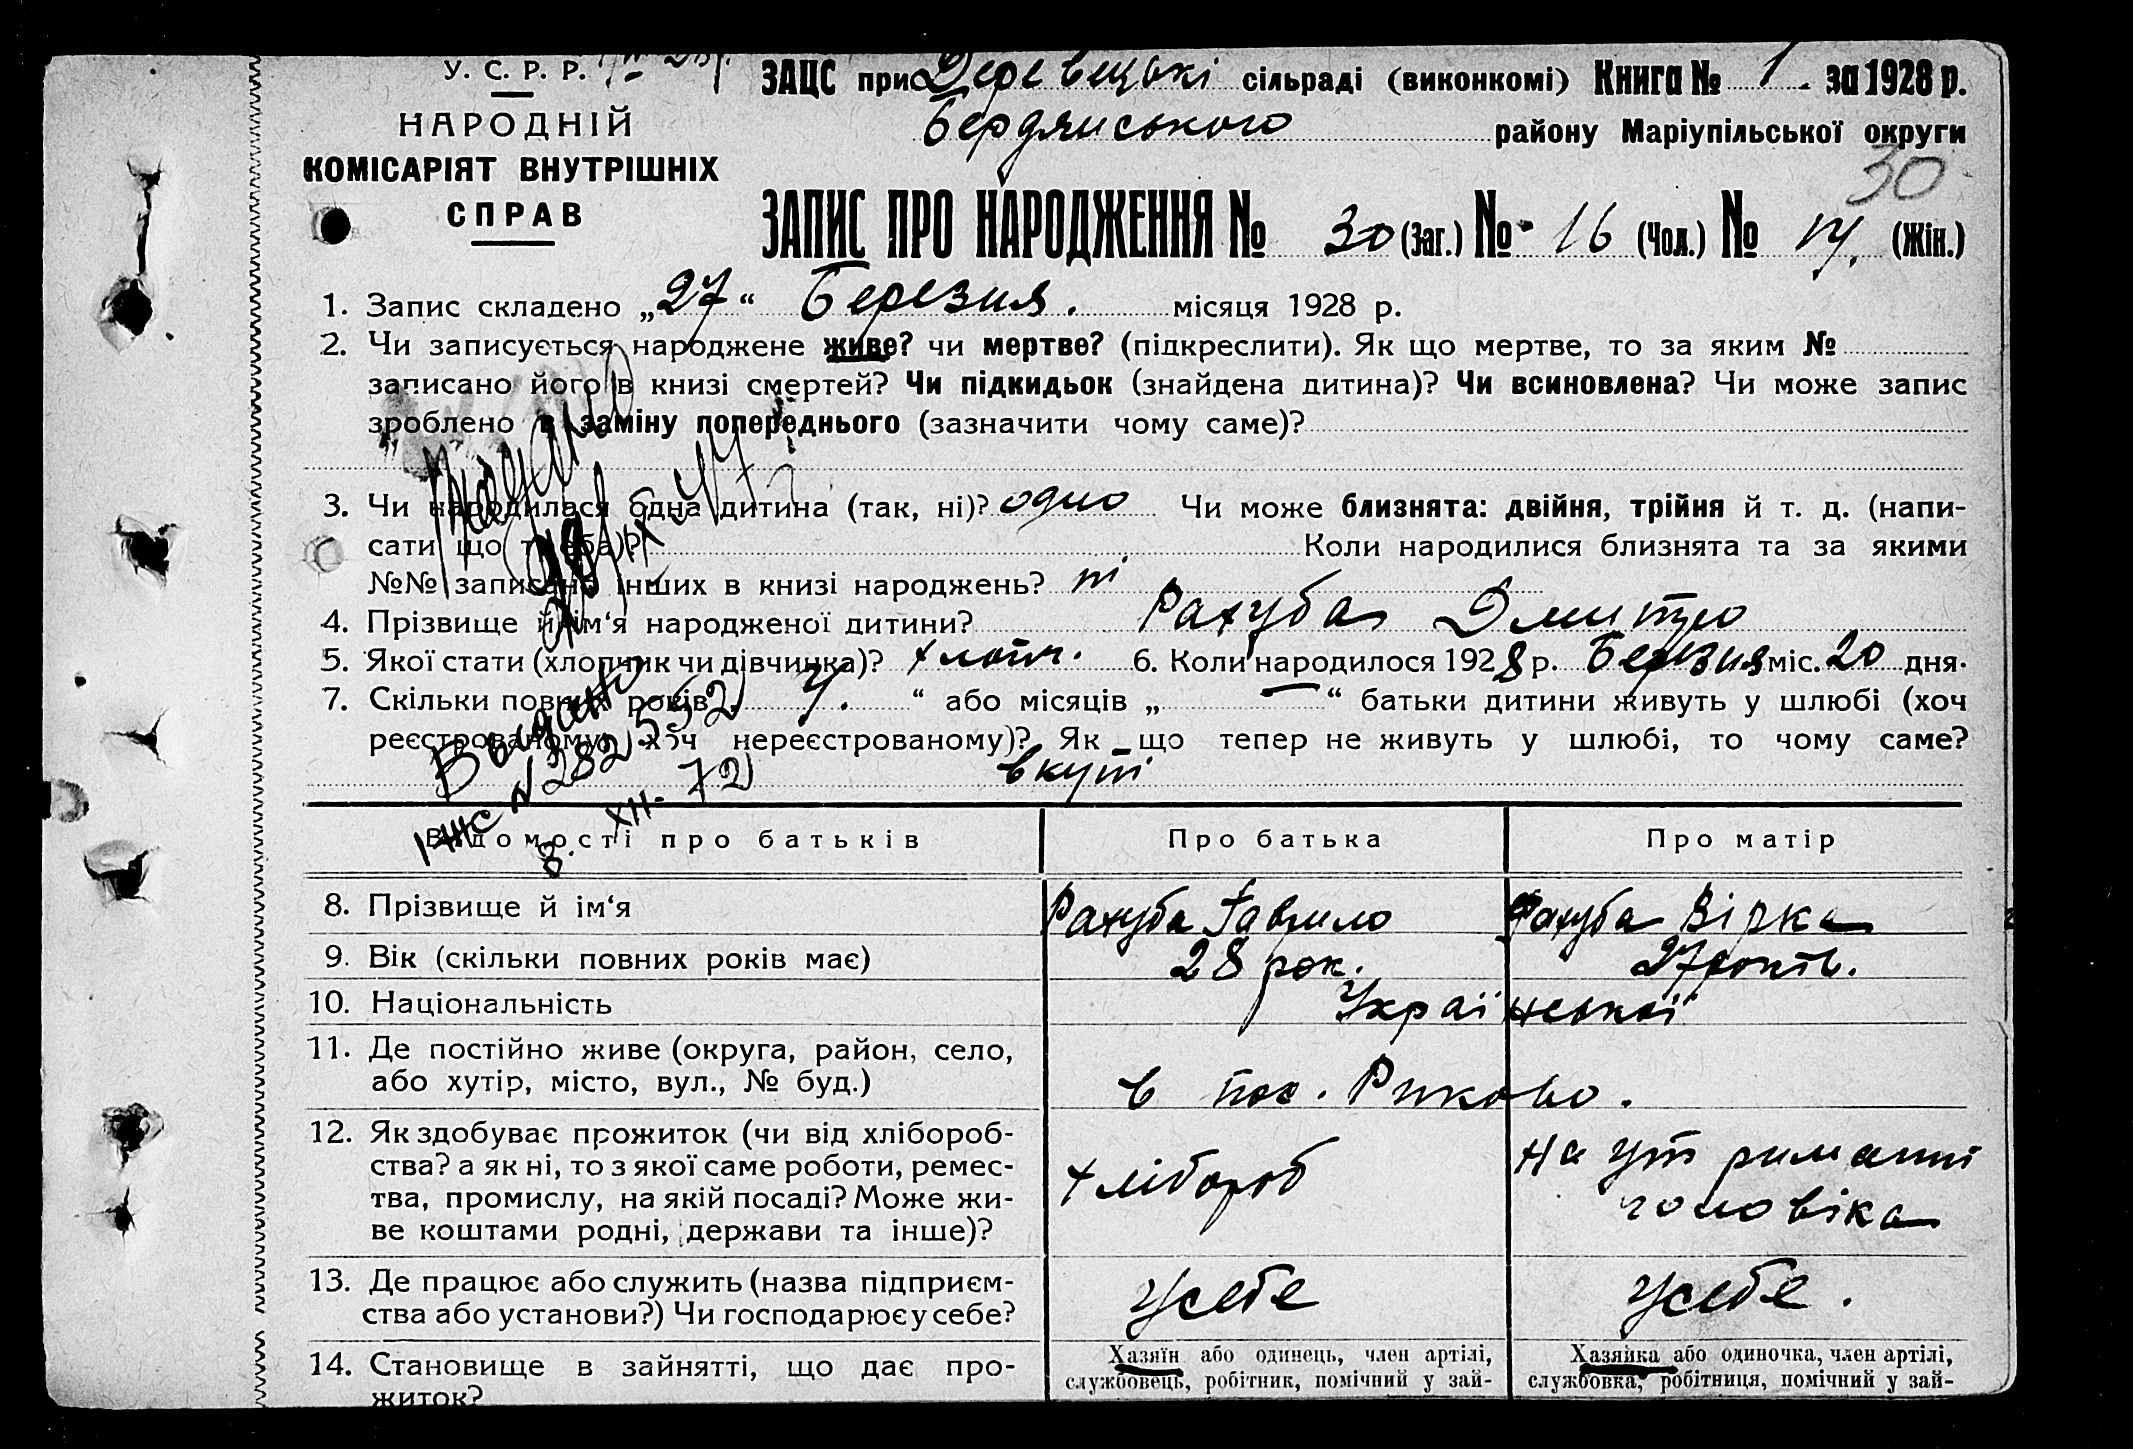 У. С. Р. Р.
НАРОДНІЙ
КОМІСАРІЯТ ВНУТРІШНІХ
СПРАВ
ЗАЦС при сільраді (виконкомі) Книга № 1. за 1928 р.
Бердянського району Маріупільської округи
30
ЗАПИС ПРО НАРОДЖЕННЯ № 30 (Заг.) № 16 (Чол.) № 14. (Жін.)
1. Запис складено „27“ Березня. місяця 1928 р.
2. Чи записується народжене живе? чи мертве? (підкреслити). Як що мертве, то за яким №
записано його в книзі смертей? Чи підкидьок (знайдена дитина)? Чи всиновлена? Чи може запис
зроблено в заміну попереднього (зазначити чому саме)?
3. Чи народилася одна дитина (так, ні)? одно Чи може близнята: двійня, трійня й т. д. (напи-
сати що треба)? Коли народилися близнята та за якими
№№ записано інших в книзі народжень? ні
4. Прізвище й ім‘я народженої дитини? Рахуба Дмитро
5. Якої стати (хлопчик чи дівчинка)? хлопч. 6. Коли народилося 1928 р. Березня міс. 20 дня.
7. Скільки повних років „ “ або місяців „ — “ батьки дитини живуть у шлюбі (хоч
реєстрованому, хоч нереєстрованому)? Як що тепер не живуть у шлюбі, то чому саме?
вкупі
Видано
№ 282552
XII-72
Відомості про батьків Про батька Про матір
8. Прізвище й ім‘я Рахуба Гаврило Рахуба Вірка
9. Вік (скільки повних років має) 28 рок. 27 років.
10. Національність Української
11. Де постійно живе (округа, район, село,
або хутір, місто, вул., № буд.) в пос. Риково.
12. Як здобуває прожиток (чи від хлібороб-
ства? а як ні, то з якої саме роботи, ремес-
тва, промислу, на якій посаді? Може жи-
ве коштами родні, держави та інше)? Хлібороб На утриманні
чоловіка
13. Де працює або служить (назва підприєм-
ства або установи?) Чи господарює у себе? Усебе Усебе.
14. Становище в зайнятті, що дає про-
житок? Хазяїн або одинець, член артілі,
службовець, робітник, помічний у зай-
Хазяйка або одиночка, член артілі,
службовка, робітниця, помічний у зай-